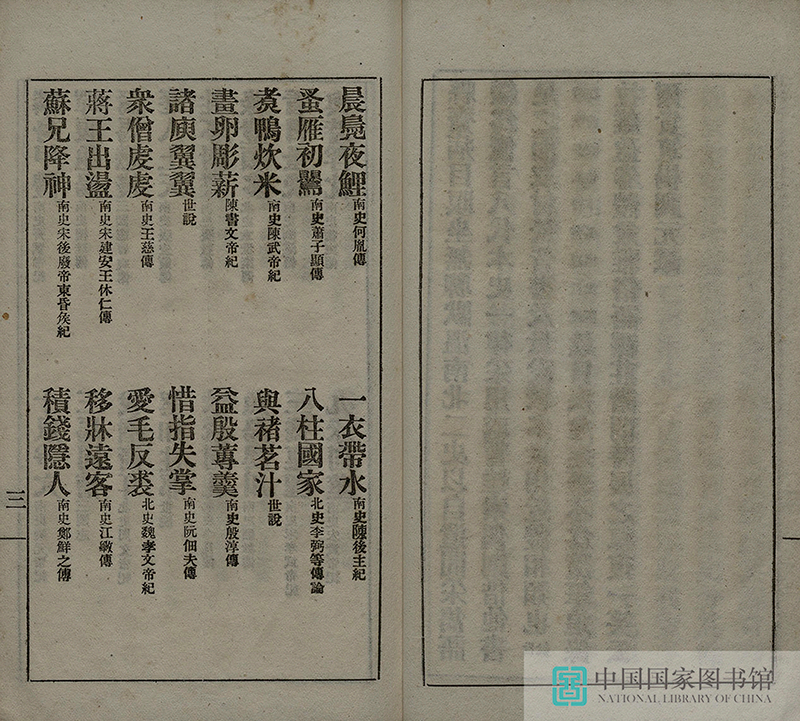 晨鳧夜鯉 南史何胤傳
一衣帶水 南史陳後主紀
蚤雁初鶯 南史蕭子顯傳
八柱國家 北史李弼等傳論
煑鴨炊米 南史陳武帝紀
與褚茗汁 世說
畫卵彫薪 陳書文帝紀
益殷蓴羹 南史殷淳傳
諸庾翼翼 世說
惜指失掌 南史阮佃夫傳
衆僧虔虔 南史王慈傳
愛毛反裘 北史魏孝文帝紀
蔣王出盪 南史宋建安王休仁傳
移牀遠客 南史江斆傳
蘇兄降神 南史宋後廢帝東昏矦紀
積錢隱人 南史鄭鮮之傳
三
中国国家图书馆
NATIONAL LIBRARY OF CHINA